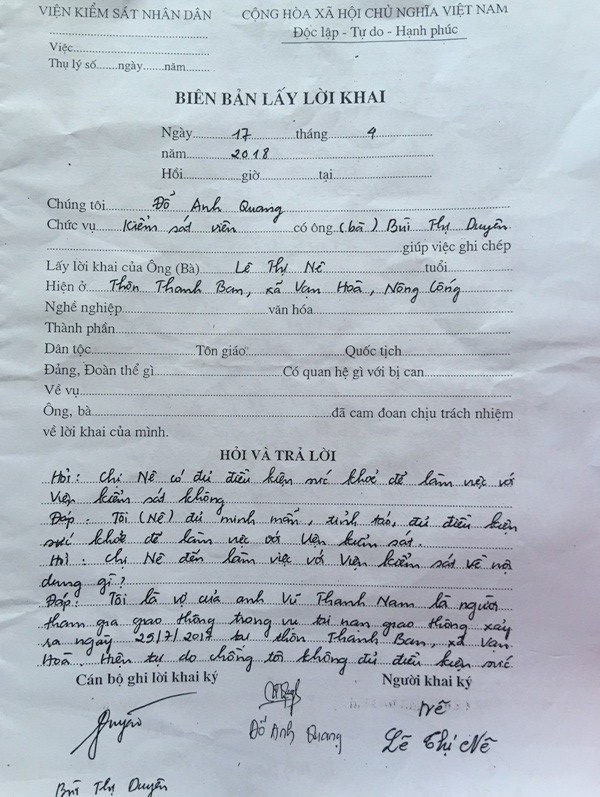 VIỆN KIỂM SÁT NHÂN DÂN
CỘNG HÒA XÃ HỘI CHỦ NGHĨA VIỆT NAM
Độc lập - Tự do - Hạnh phúc
Việc
Thụ lý số.......ngày......năm
BIÊN BẢN LẤY LỜI KHAI
Ngày 17 tháng 4
năm 2018
Hồi giờ tại
Chúng tôi Đỗ Anh Quang
Chức vụ Kiểm sát viên có ông (bà) Bùi Thị Duyên
giúp việc ghi chép
Lấy lời khai của Ông (Bà) Lê Thị Nê tuổi
Hiện ở Thôn Thanh Ban, xã Vạn Hoà, Nông Cống
Nghề nghiệp văn hóa
Thành phần
Dân tộc Tôn giáo Quốc tịch
Đảng, Đoàn thể gì Có quan hệ gì với bị can
Về vụ
Ông, bà đã cam đoan chịu trách nhiệm
về lời khai của mình.
HỎI VÀ TRẢ LỜI
Hỏi: Chị Nê có đủ điều kiện sức khoẻ để làm việc với
Viện kiểm sát không
Đáp: Tôi (Nê) đủ minh mẫn, tỉnh táo, đủ điều kiện
sức khoẻ để làm việc với Viện kiểm sát.
Hỏi: Chị Nê đến làm việc với Viện kiểm sát về nội
dung gì?
Đáp: Tôi là vợ của anh Vũ Thanh Nam là người
tham gia giao thông trong vụ tai nạn giao thông xảy
ra ngày 25/7/2017 tại thôn Thanh Ban, xã Vạn
Hoà. Hiện tại do chồng tôi không đủ điều kiện sức
Cán bộ ghi lời khai ký
Người khai ký
Duyên
Nê
Đỗ Anh Quang
Lê Thị Nê
Bùi Thị Duyên